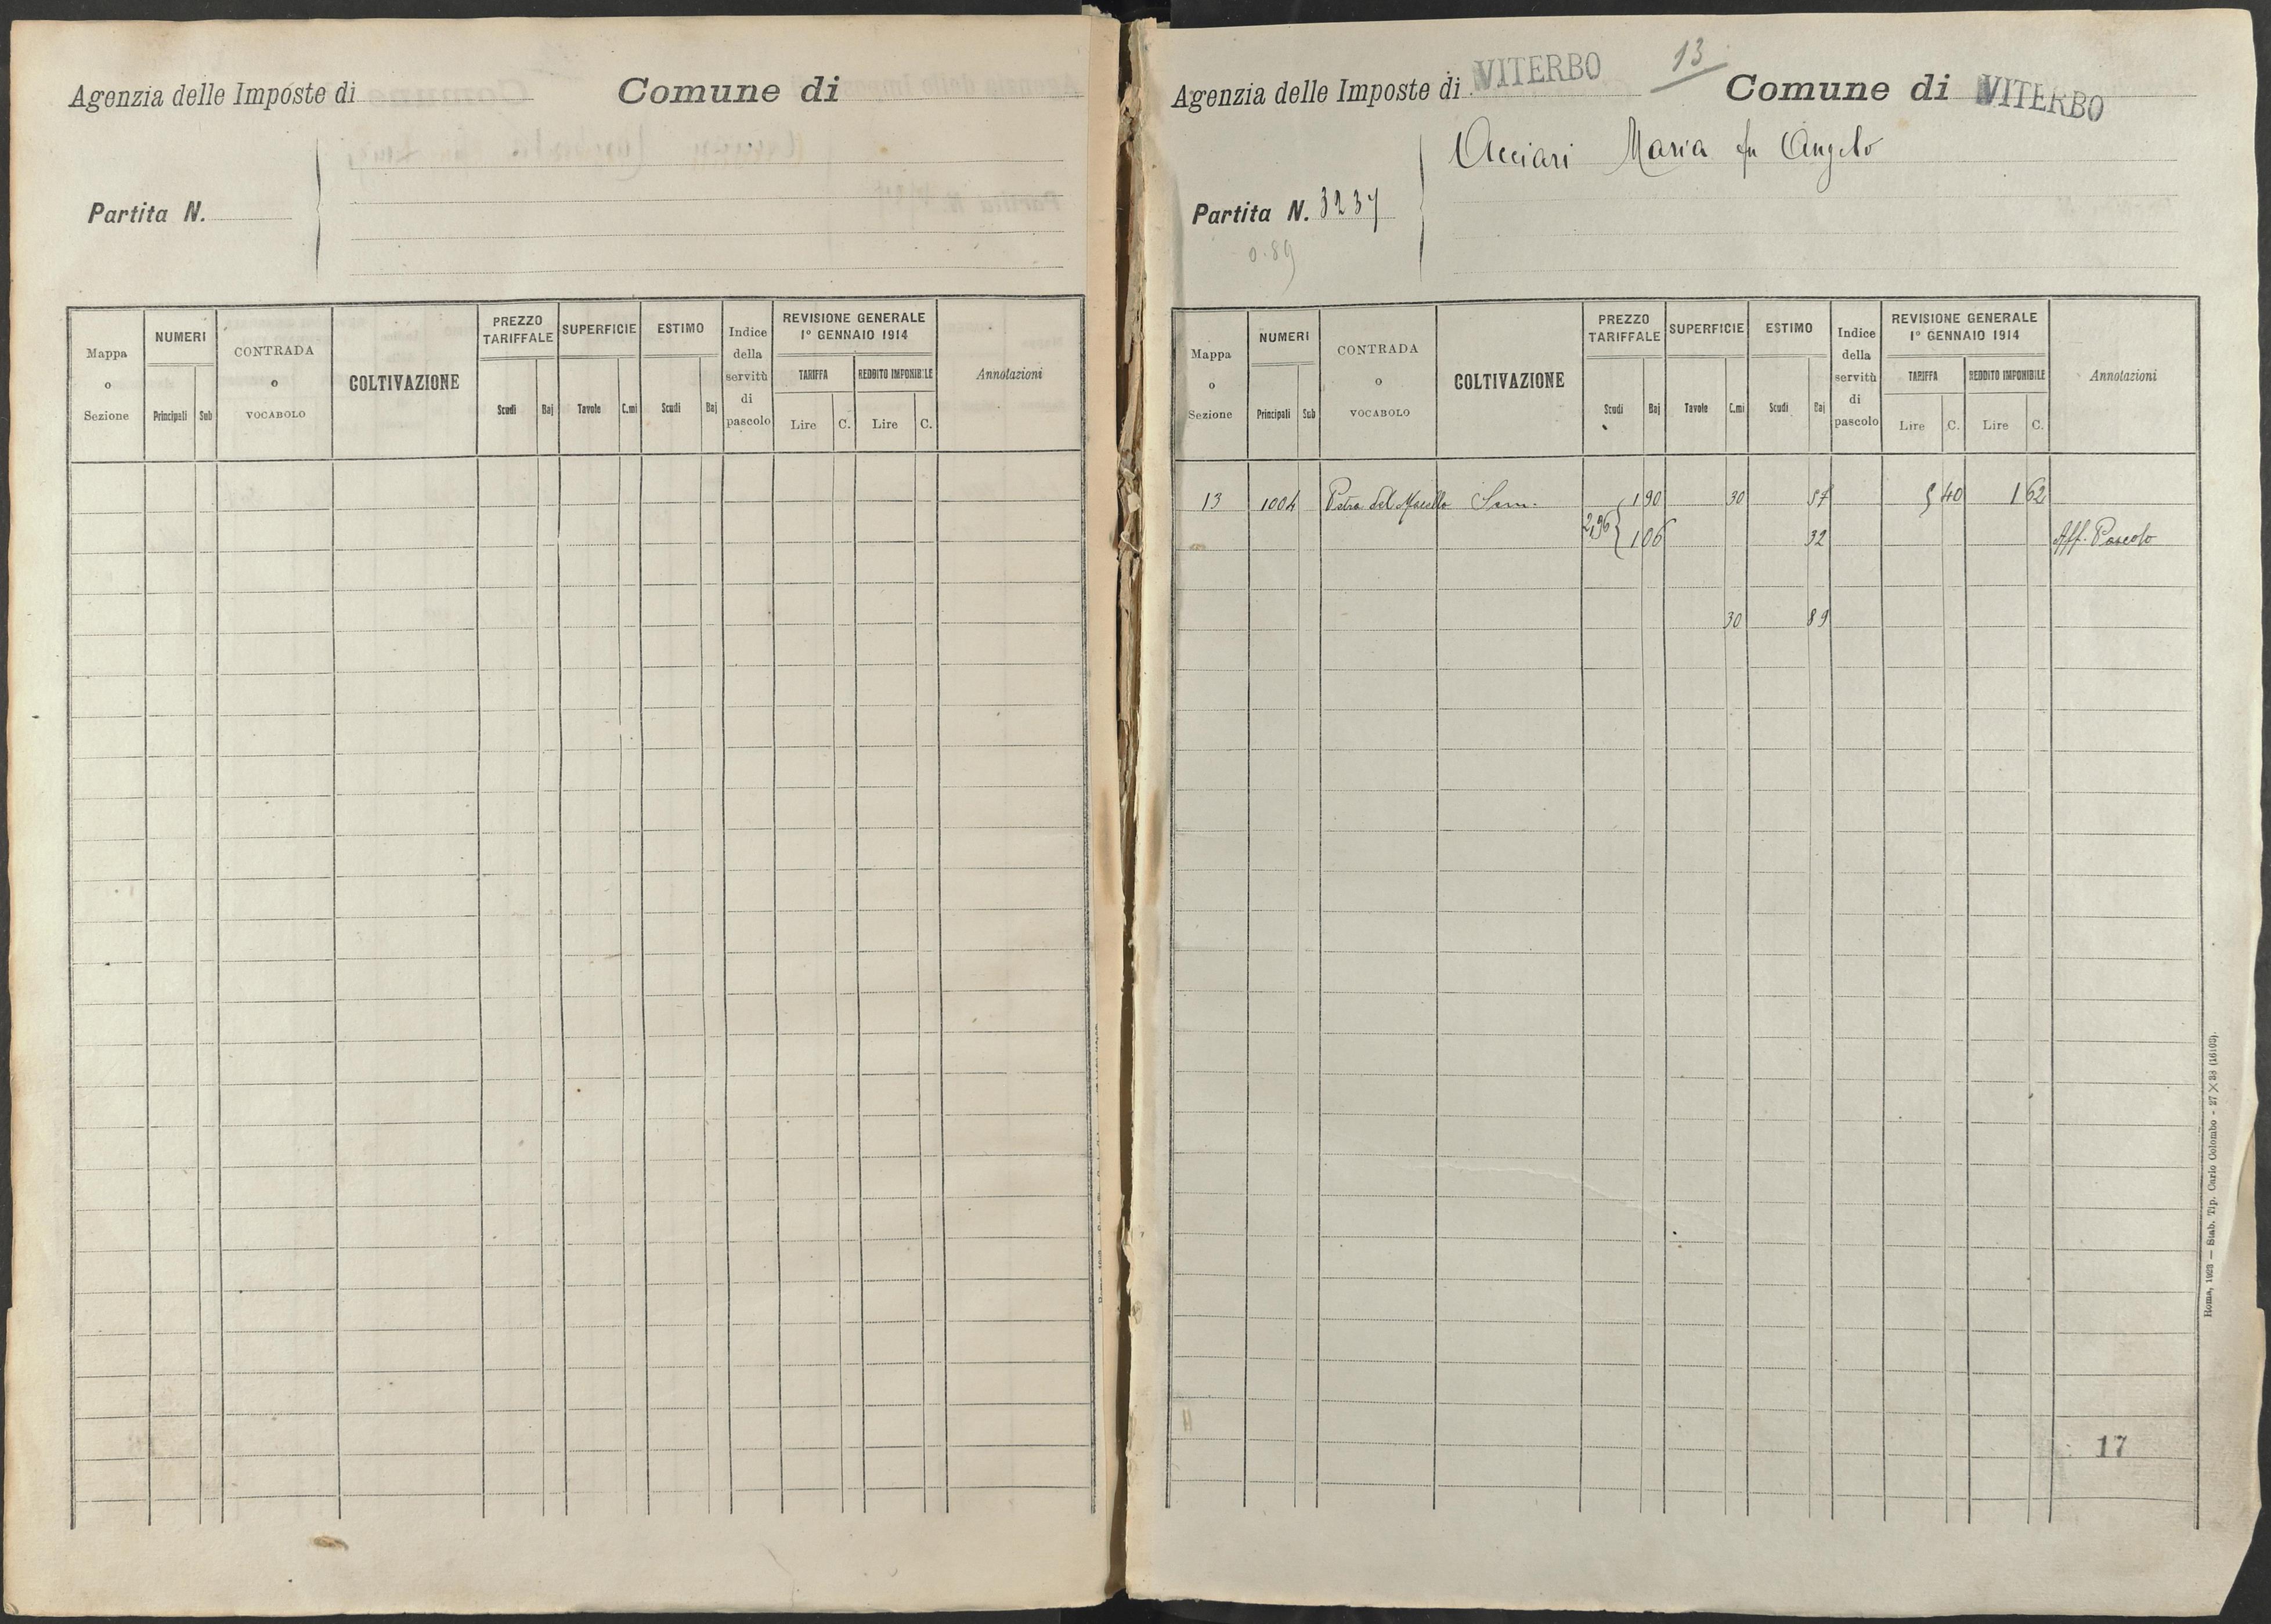 Agenzia delle Imposte di Comune di
Partita N.
Mappa o Sezione NUMERI Principali Sub CONTRADA o VOCABOLO COLTIVAZIONE PREZZO TARIFFALE Scudi Baj SUPERFICIE Tavole C.mi ESTIMO Scudi Baj Indice della servitù di pascolo REVISIONE GENERALE 1º GENNAIO 1914 TARIFFA Lire C. REDDITO IMPONIBILE Lire C. Annotazioni
13
Agenzia delle Imposte di VITERBO Comune di VITERBO
Acciari Maria fu Angelo
Partita N. 3237
0.89
Mappa o Sezione NUMERI Principali Sub CONTRADA o VOCABOLO COLTIVAZIONE PREZZO TARIFFALE Scudi Baj SUPERFICIE Tavole C.mi ESTIMO Scudi Baj Indice della servitù di pascolo REVISIONE GENERALE 1º GENNAIO 1914 TARIFFA Lire C. REDDITO IMPONIBILE Lire C. Annotazioni
13 1004 Pietra del Macello Sem. 1 90 30 57 5 40 1 62
2,96 1 06 32 Aff. Pascolo
30 89
17
Roma, 1923 — Stab. Tip. Carlo Colombo - 27 × 38 (16103).